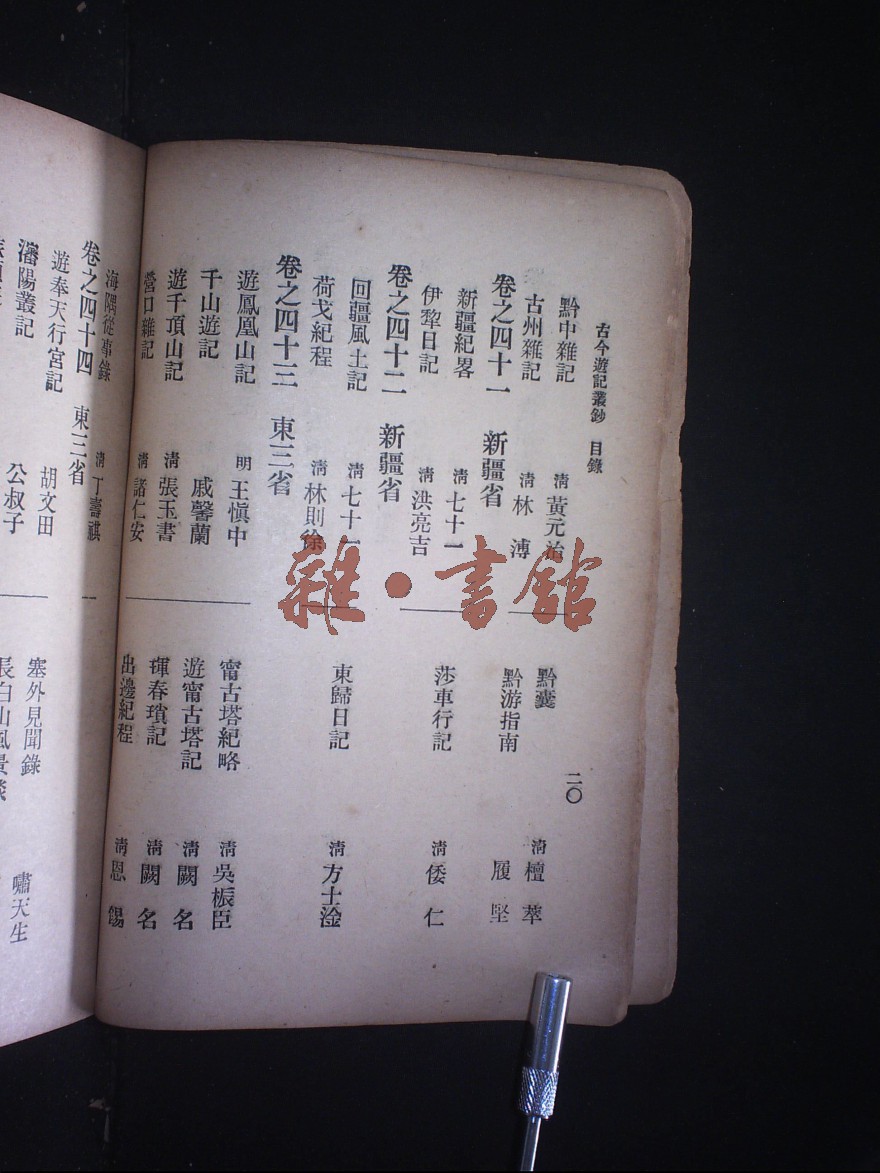 古今遊記叢鈔 目錄 二〇
黔中雜記 清 黃元治 黔囊 清 檀萃
古州雜記 清 林溥 黔游指南 履堅
卷之四十一 新疆省
新疆紀畧 清 七十一 莎車行記 清 倭仁
伊犂日記 清 洪亮吉
卷之四十二 新疆省
回疆風土記 清 七十一 東歸日記 清 方士淦
荷戈紀程 清 林則徐
卷之四十三 東三省
遊鳳凰山記 明 王愼中 甯古塔紀略 清 吳桭臣
千山遊記 戚馨蘭 遊甯古塔記 清 闕名
遊千頂山記 清 張玉書 琿春瑣記 清 闕名
營口雜記 清 諸仁安 出邊紀程 清 恩錫
海隅從事錄 清 丁壽祺
卷之四十四 東三省
遊奉天行宮記 胡文田 塞外見聞錄 嘯天生
瀋陽叢記 公叔子 長白山風景談
雜·書館